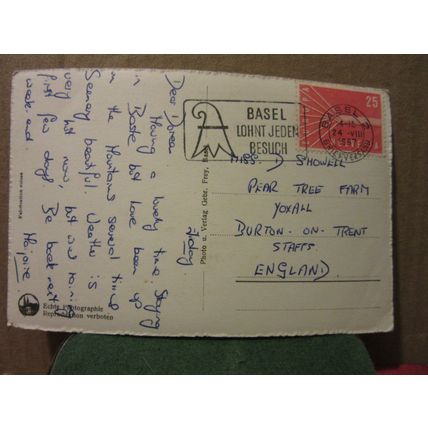 Friday
Dear Doreen
Having a lovely time staying
in Basle but have been up
in the Mountains several times
Scenery beautiful. Weather is
very hot now, but was raining
first few days. Be back next
weekend
Marjorie.
Fabrication suisse
Echte Photographie
Reproduktion verboten
Photo u. Verlag Gebr. Frey,
BASEL
LOHNT JEDEN
BESUCH
BASEL 2
24 -VIII
1957
25
MISS D SHOWELL
PEAR TREE FARM
YOXALL
BURTON-ON-TRENT
STAFFS.
ENGLAND.